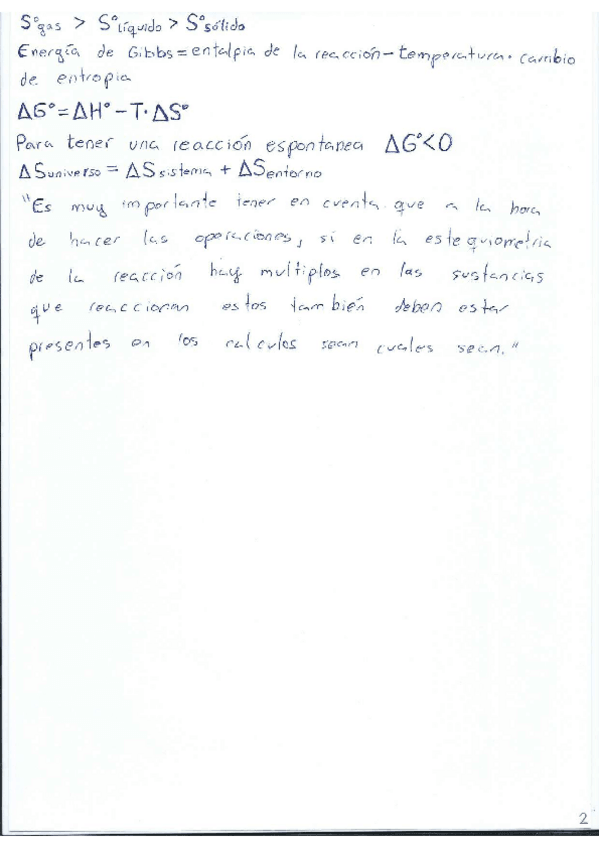 S°gas > S°líquido > S°sólido
Energía de Gibbs = entalpia de la reacción - temperatura · cambio
de entropia
ΔG° = ΔH° - T · ΔS°
Para tener una reacción espontanea ΔG° < 0
ΔSuniverso = ΔSsistema + ΔSentorno
"Es muy importante tener en cuenta que a la hora
de hacer las operaciones, si en la estequiometria
de la reacción hay multiplos en las sustancias
que reaccionan estos también deben estar
presentes en los calculos sean cuales sean."
2